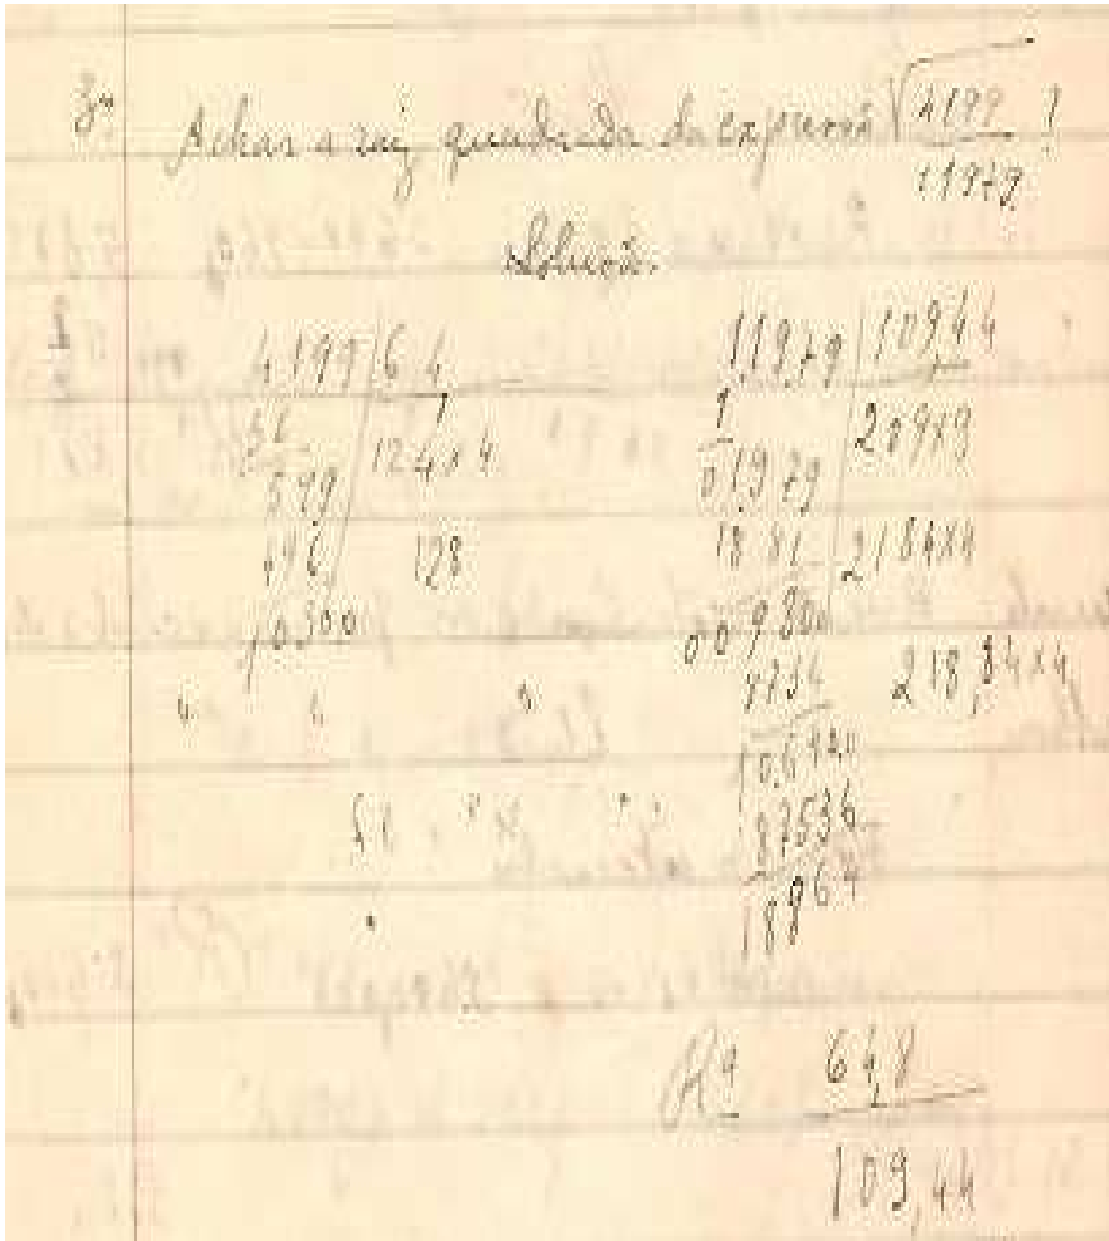 3ª Achar a raiz quadrada da expressão √4199 ?
11979
Solução
4199 | 64
36
599 | 124x4
496 128
10300
11979 | 109,44
1
01979 209x9
1881 2184x4
009800
8736 218,84x4
87536
6 4,8
109,44